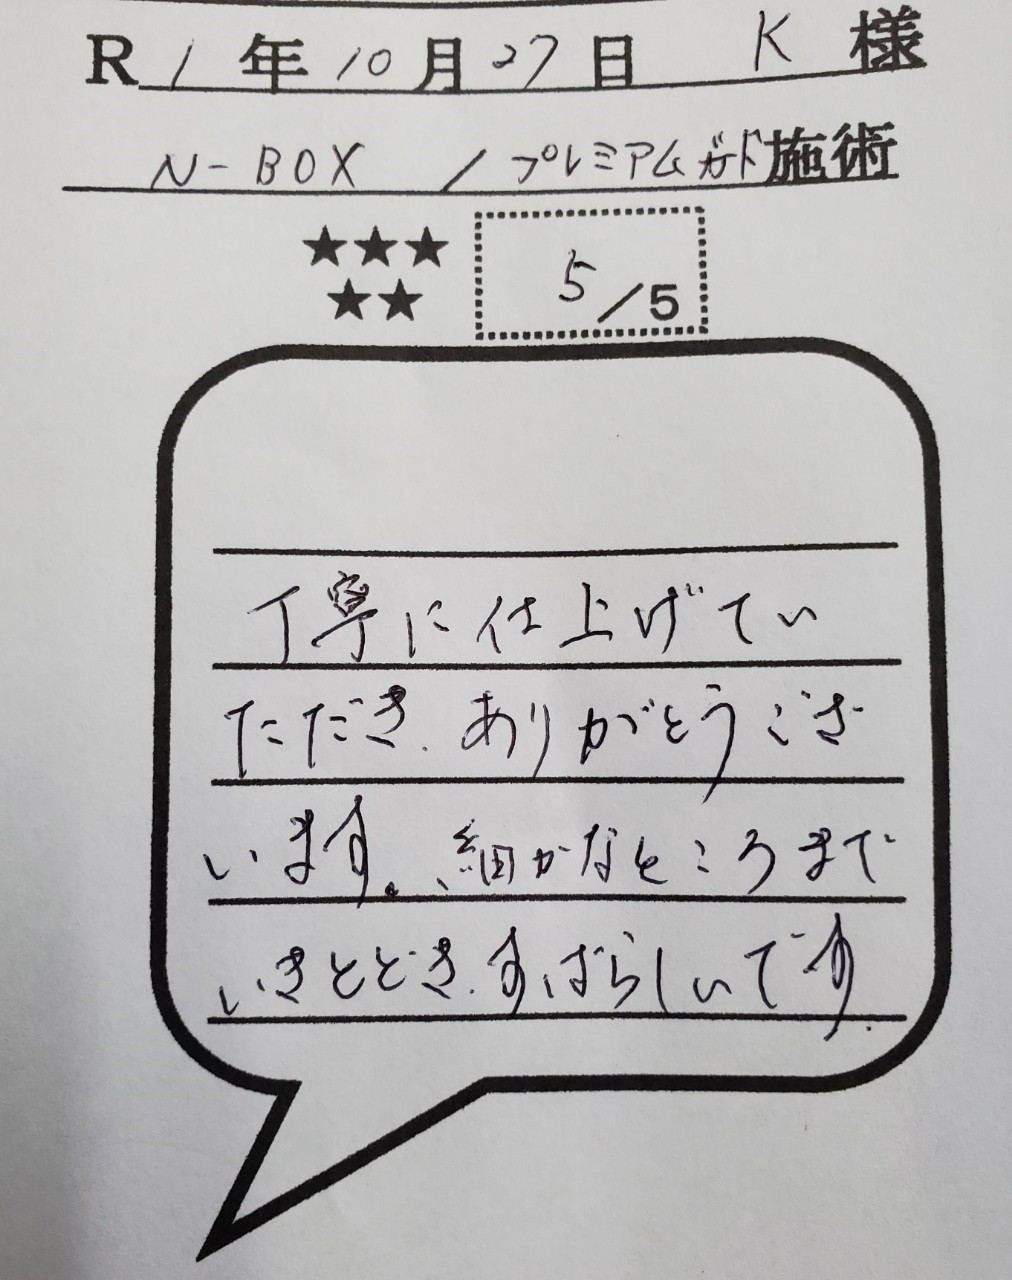 R 1 年 10 月 27 日 K 様
N-BOX / プレミアムガード施術
★★★
★★
5/5
丁寧に仕上げてい
ただき、ありがとうござ
います。細かなところまで
いきとどき、すばらしいです。